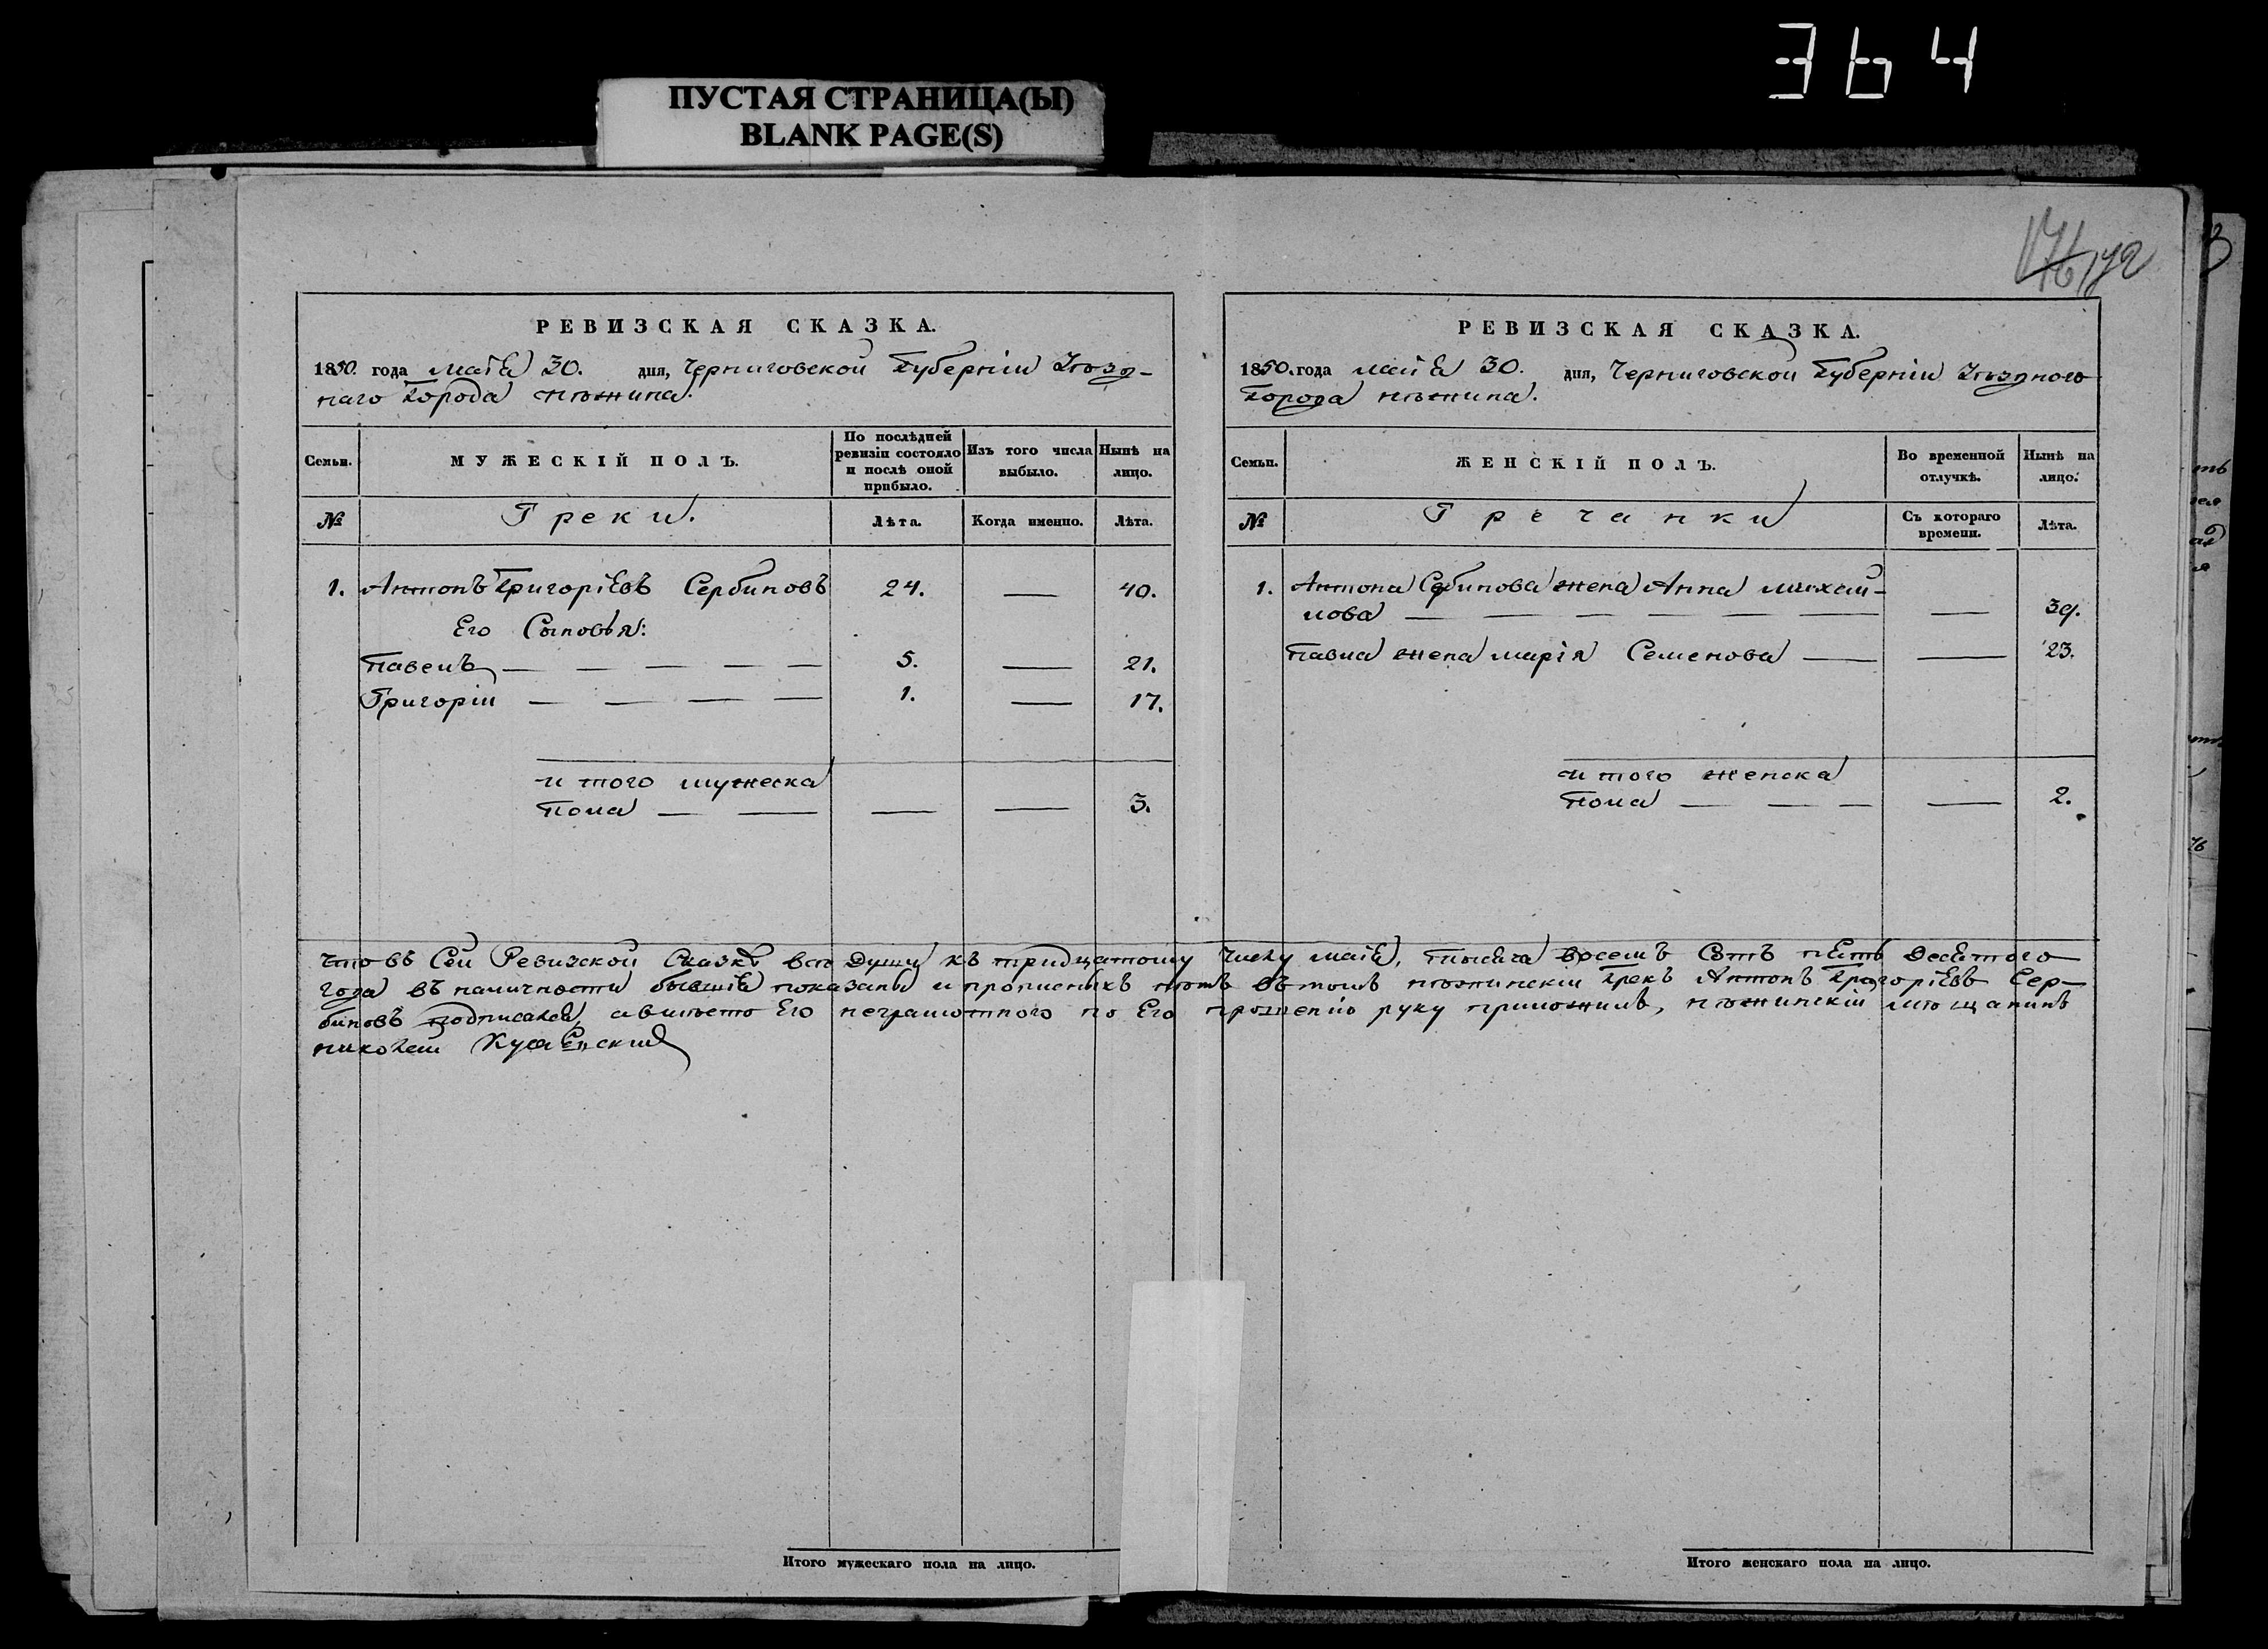 364
ПУСТАЯ СТРАНИЦА(Ы)
BLANK PAGE(S)
176 172
РЕВИЗСКАЯ СКАЗКА.
1850. года маія 30. дня, Черниговской Губерніи Уѣзд-
наго Города Нѣжина.
Семьи.
МУЖЕСКІЙ ПОЛЪ.
По послѣдней ревизіи состояло и послѣ оной прибыло.
Изъ того числа выбыло.
Нынѣ на лицо.
№
Греки.
Лѣта.
Когда именно.
Лѣта.
1. Антонъ Григоріевъ Сербиновъ 24. — 40.
Его Сыновья:
Павелъ — — — — — 5. — 21.
Григорій — — — — 1. — 17.
и того мужеска
пола — — — — 3.
РЕВИЗСКАЯ СКАЗКА.
1850. года маія 30. дня, Черниговской Губерніи Уѣздного
Города Нѣжина.
Семьи.
ЖЕНСКІЙ ПОЛЪ.
Во временной отлучкѣ.
Нынѣ на лицо.
№
Гречанки
Съ котораго времени.
Лѣта.
1. Антона Сербинова жена Анна михай-
лова — — — — — — 39.
Павла жена марія Семенова — — 23.
и того женска
пола — — — — 2.
Что въ Сей Ревизской Сказкѣ всѣ души къ тридцатому числу маія, тысяча восемъ Сотъ пять десятого
года въ наличности бывшія показаны и прописныхъ нѣтъ въ томъ нѣжинскій Грекъ Антонъ Григоріевъ Сер-
биновъ подписался, а вмѣсто Его неграмотного по Его прошенію руку приложилъ, нѣжинскій мѣщанинъ
николай
Итого мужескаго пола на лицо.
Итого женскаго пола на лицо.